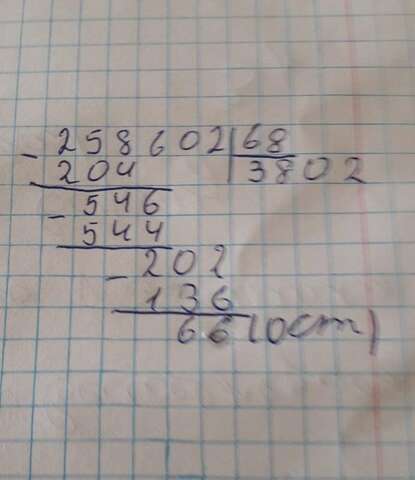 - 258602|68
204 |3802
- 546
544
- 202
136
66(ост)